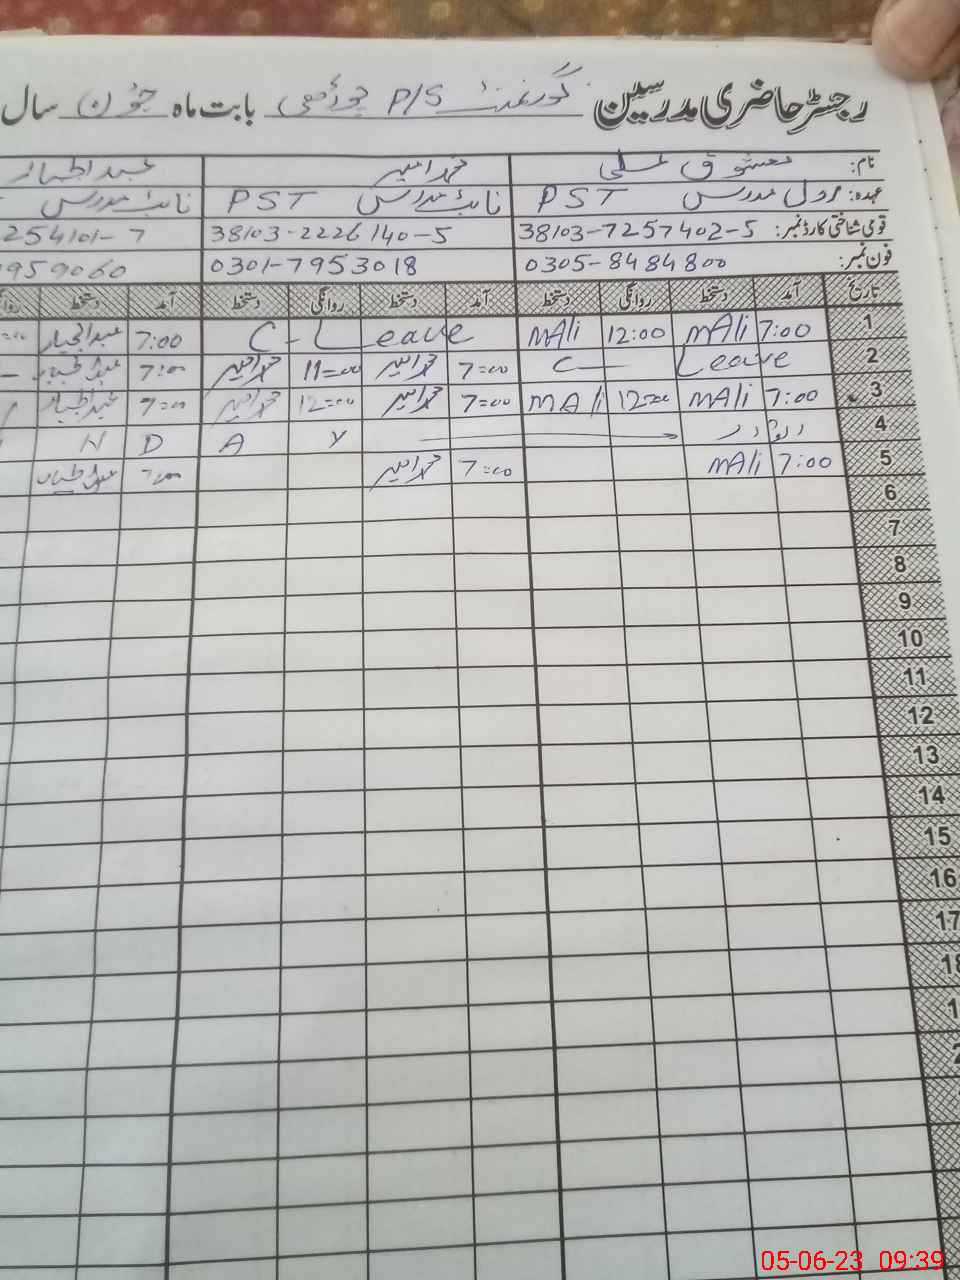 رجسٹر حاضری مدرسین گورنمنٹ P/S بابت ماہ جون سال
نام: معشوق علی محمد امیر عبدالجبار
عہدہ: اول مدرس PST نائب مدرس PST نائب مدرس
قومی شناختی کارڈ نمبر: 38103-7257402-5 38103-2226140-5 254101-7
فون نمبر: 0305-8484800 0301-7953018 959060
تاریخ آمد دستخط روانگی دستخط آمد دستخط روانگی دستخط آمد دستخط
1 7:00 MAli 12:00 MAli C-Leave 7:00 عبدالجبار
2 C- Leave 7=00 محمد امیر 11=00 محمد امیر 7:00 عبدالجبار
3 7:00 MAli 12=00 MAli 7=00 محمد امیر 12=00 محمد امیر 7=00 عبدالجبار
4 اتوار N D A Y
5 7:00 MAli 7=00 محمد امیر 7:00 عبدالجبار
6
7
8
9
10
11
12
13
14
15
16
17
18
05-06-23 09:39